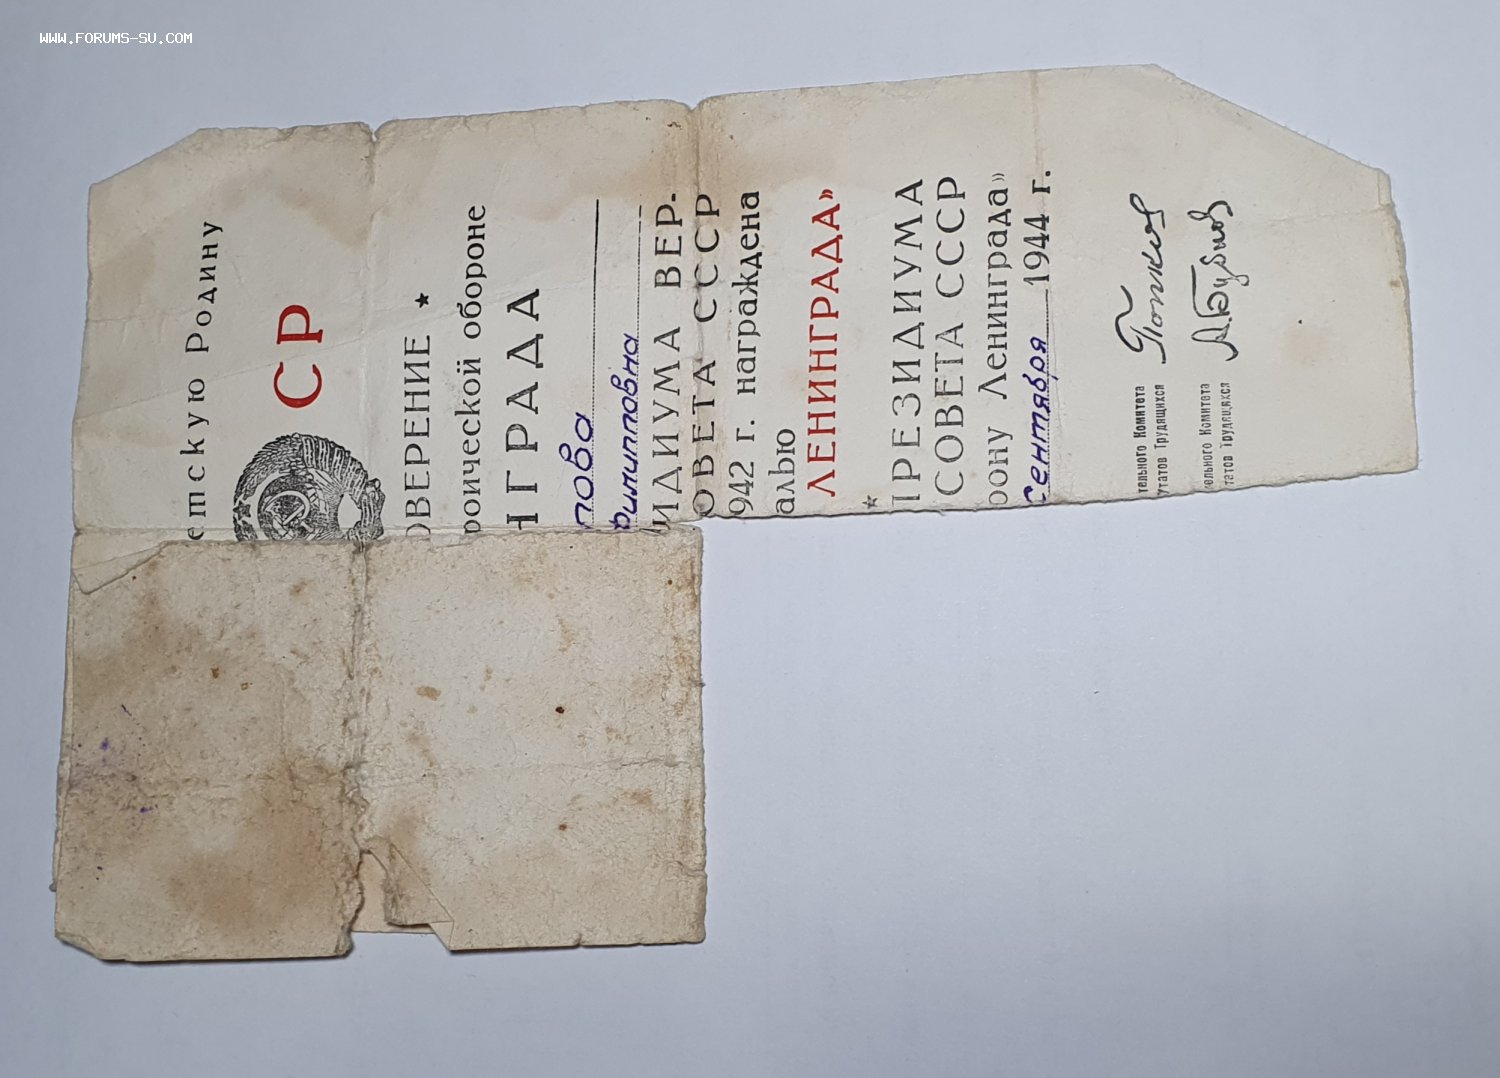 WWW.FORUMS-SU.COM
етскую Родину
СР
ОВЕРЕНИЕ ★
роической обороне
НГРАДА
пова
Филипповна
ИДИУМА ВЕР-
ОВЕТА СССР
942 г. награждена
алью
ЛЕНИНГРАДА»
★
ПРЕЗИДИУМА
СОВЕТА СССР
рону Ленинграда»
Сентября 1944 г.
тельного Комитета
утатов Трудящихся
Попков
тельного Комитета
татов Трудящихся
А. Бубнов